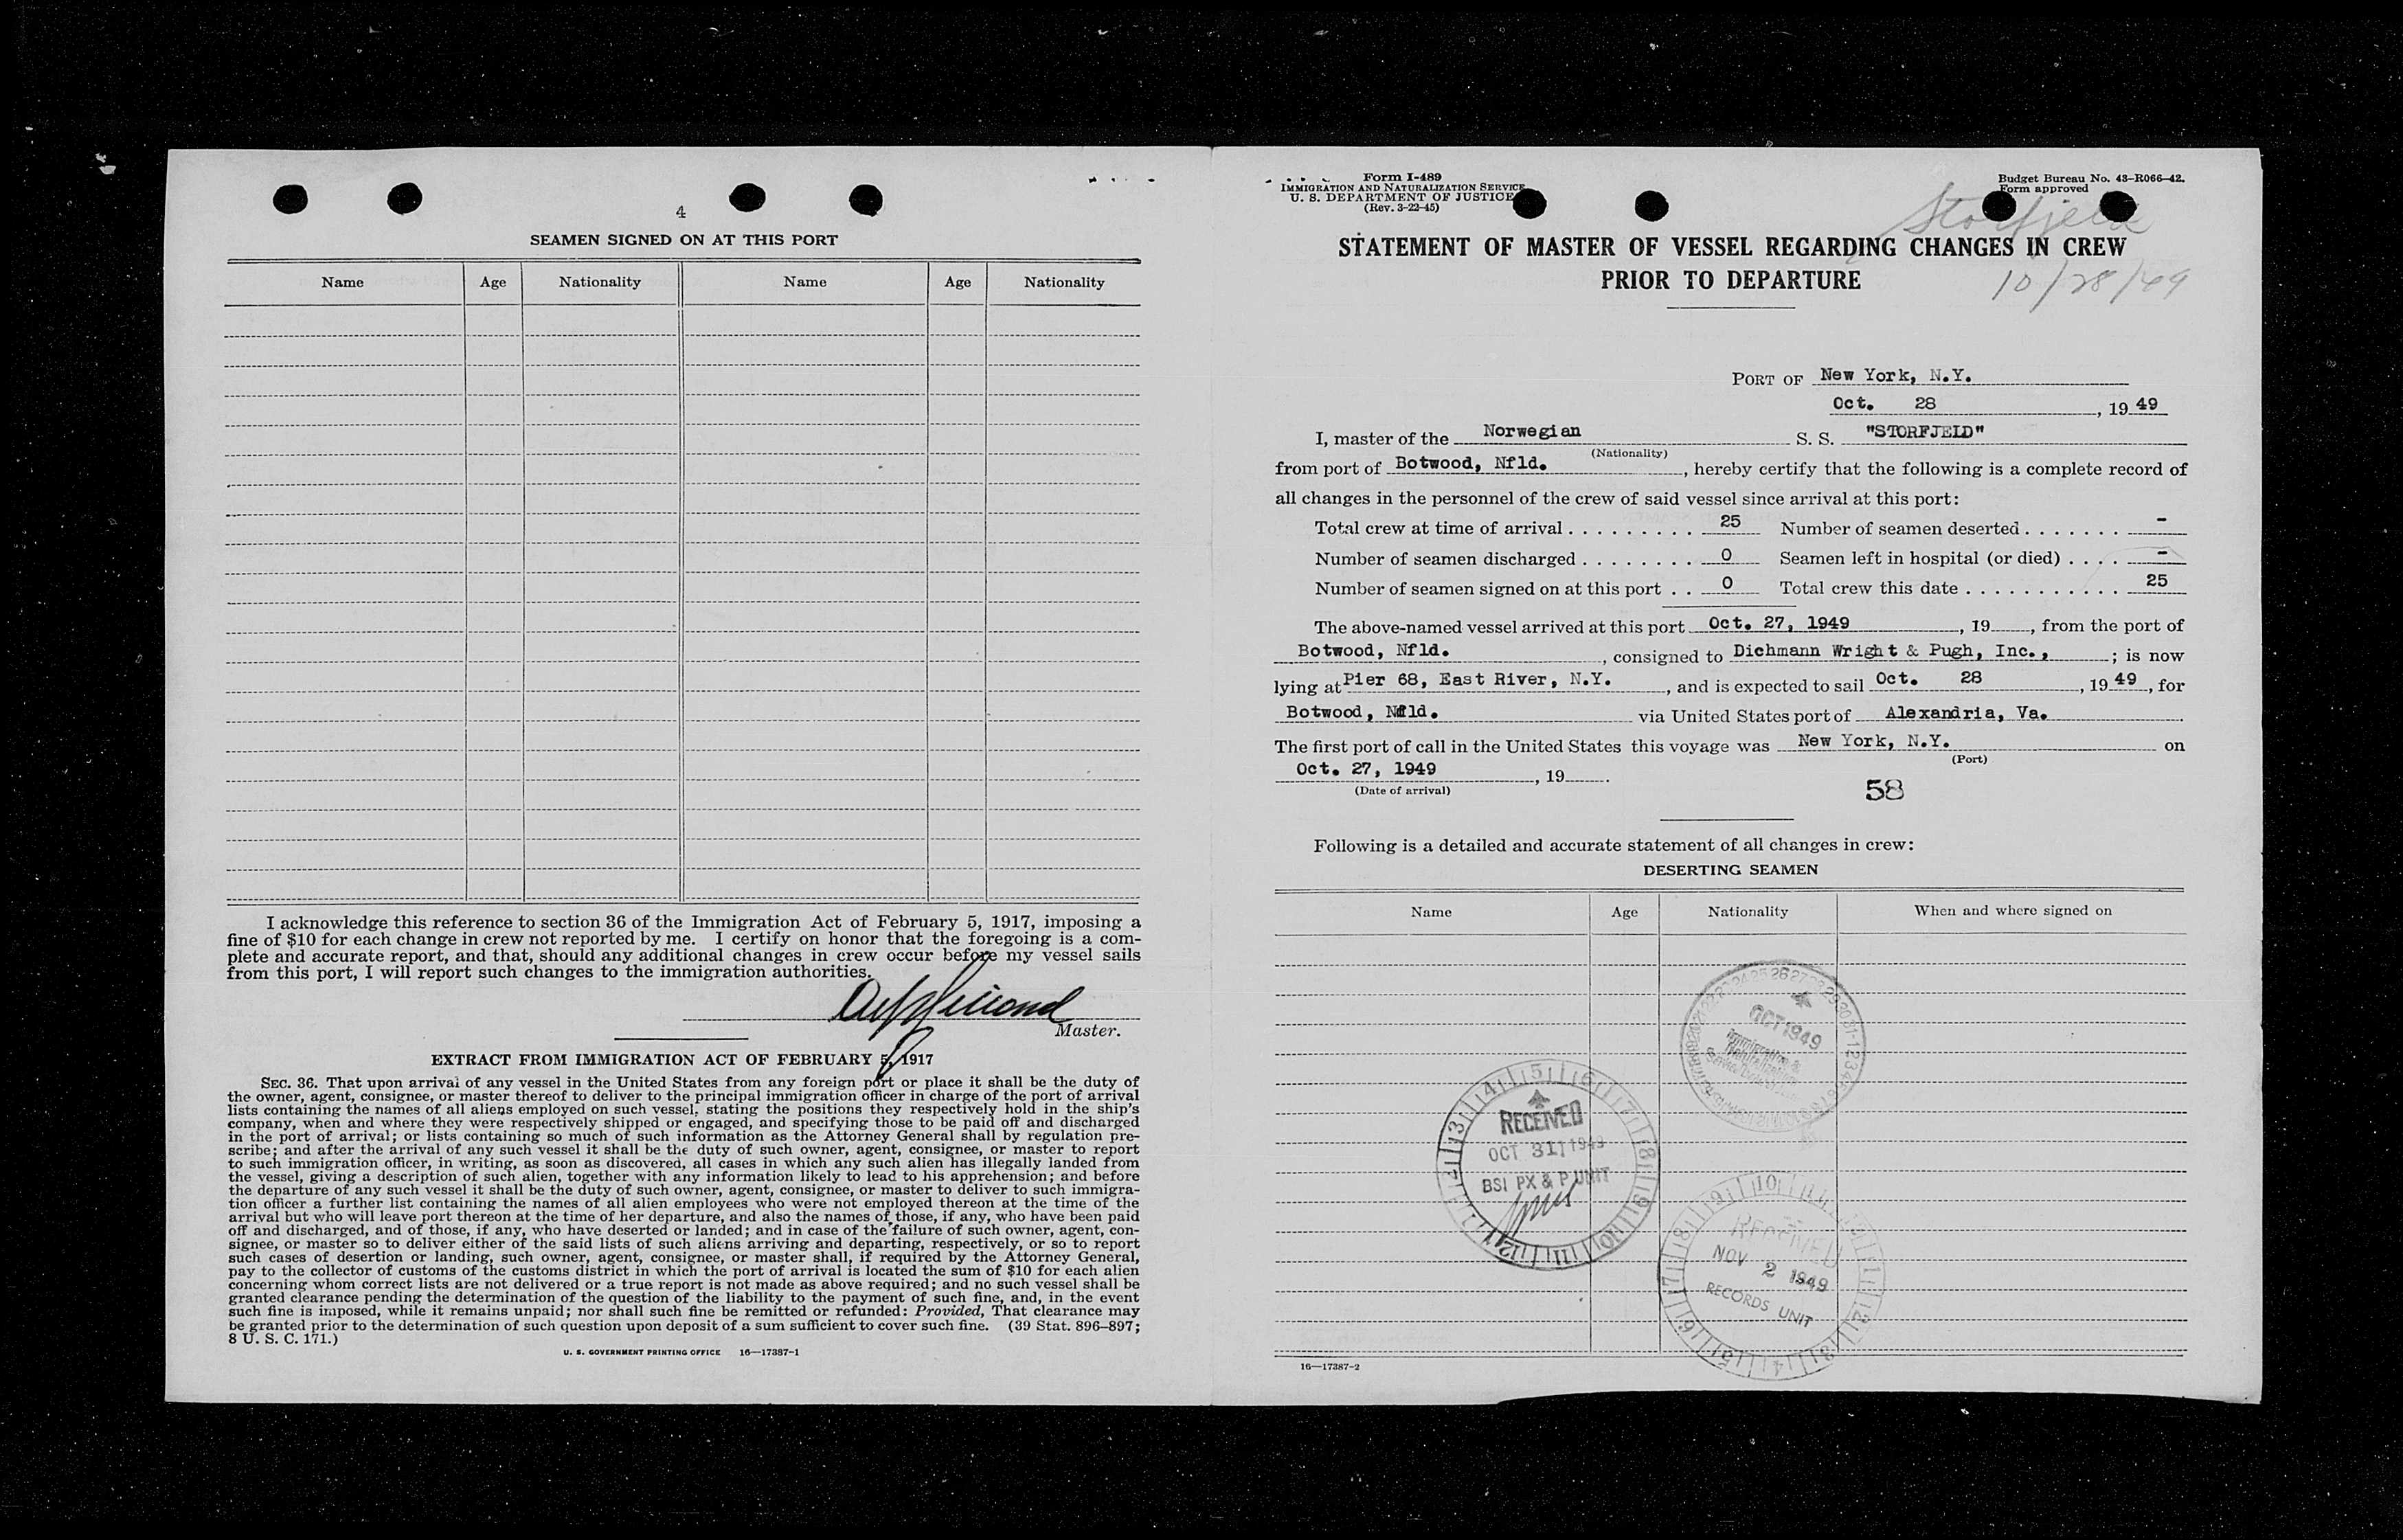 4
SEAMEN SIGNED ON AT THIS PORT
Name Age Nationality Name Age Nationality
I acknowledge this reference to section 36 of the Immigration Act of February 5, 1917, imposing a
fine of $10 for each change in crew not reported by me. I certify on honor that the foregoing is a com-
plete and accurate report, and that, should any additional changes in crew occur before my vessel sails
from this port, I will report such changes to the immigration authorities.
Master.
EXTRACT FROM IMMIGRATION ACT OF FEBRUARY 5, 1917
SEC. 36. That upon arrival of any vessel in the United States from any foreign port or place it shall be the duty of
the owner, agent, consignee, or master thereof to deliver to the principal immigration officer in charge of the port of arrival
lists containing the names of all aliens employed on such vessel, stating the positions they respectively hold in the ship's
company, when and where they were respectively shipped or engaged, and specifying those to be paid off and discharged
in the port of arrival; or lists containing so much of such information as the Attorney General shall by regulation pre-
scribe; and after the arrival of any such vessel it shall be the duty of such owner, agent, consignee, or master to report
to such immigration officer, in writing, as soon as discovered, all cases in which any such alien has illegally landed from
the vessel, giving a description of such alien, together with any information likely to lead to his apprehension; and before
the departure of any such vessel it shall be the duty of such owner, agent, consignee, or master to deliver to such immigra-
tion officer a further list containing the names of all alien employees who were not employed thereon at the time of the
arrival but who will leave port thereon at the time of her departure, and also the names of those, if any, who have been paid
off and discharged, and of those, if any, who have deserted or landed; and in case of the failure of such owner, agent, con-
signee, or master so to deliver either of the said lists of such aliens arriving and departing, respectively, or so to report
such cases of desertion or landing, such owner, agent, consignee, or master shall, if required by the Attorney General,
pay to the collector of customs of the customs district in which the port of arrival is located the sum of $10 for each alien
concerning whom correct lists are not delivered or a true report is not made as above required; and no such vessel shall be
granted clearance pending the determination of the question of the liability to the payment of such fine, and, in the event
such fine is imposed, while it remains unpaid; nor shall such fine be remitted or refunded: Provided, That clearance may
be granted prior to the determination of such question upon deposit of a sum sufficient to cover such fine. (39 Stat. 896–897;
8 U. S. C. 171.)
U. S. GOVERNMENT PRINTING OFFICE 16—17387-1
Form I-489
IMMIGRATION AND NATURALIZATION SERVICE
U. S. DEPARTMENT OF JUSTICE
(Rev. 3-22-45)
Budget Bureau No. 43-R066-42.
Form approved
Storfjeld
STATEMENT OF MASTER OF VESSEL REGARDING CHANGES IN CREW
PRIOR TO DEPARTURE
10/28/49
PORT OF New York, N.Y.
Oct. 28, 19 49
I, master of the Norwegian S. S. "STORFJELD"
(Nationality)
from port of Botwood, Nfld., hereby certify that the following is a complete record of
all changes in the personnel of the crew of said vessel since arrival at this port:
Total crew at time of arrival . . . . . . . . . 25 Number of seamen deserted . . . . . . . -
Number of seamen discharged . . . . . . . . 0 Seamen left in hospital (or died) . . . . -
Number of seamen signed on at this port . . 0 Total crew this date . . . . . . . . . . . 25
The above-named vessel arrived at this port Oct. 27, 1949, 19, from the port of
Botwood, Nfld., consigned to Dichmann Wright & Pugh, Inc.,; is now
lying at Pier 68, East River, N.Y., and is expected to sail Oct. 28, 19 49, for
Botwood, Nfld. via United States port of Alexandria, Va.
The first port of call in the United States this voyage was New York, N.Y. on
(Port)
Oct. 27, 1949, 19.
(Date of arrival)
58
Following is a detailed and accurate statement of all changes in crew:
DESERTING SEAMEN
Name Age Nationality When and where signed on
OCT 1949
Immigration &
Naturalization
RECEIVED
OCT 31 1949
BSI PX & P UNIT
RECEIVED
NOV 2 1949
RECORDS UNIT
16—17387-2